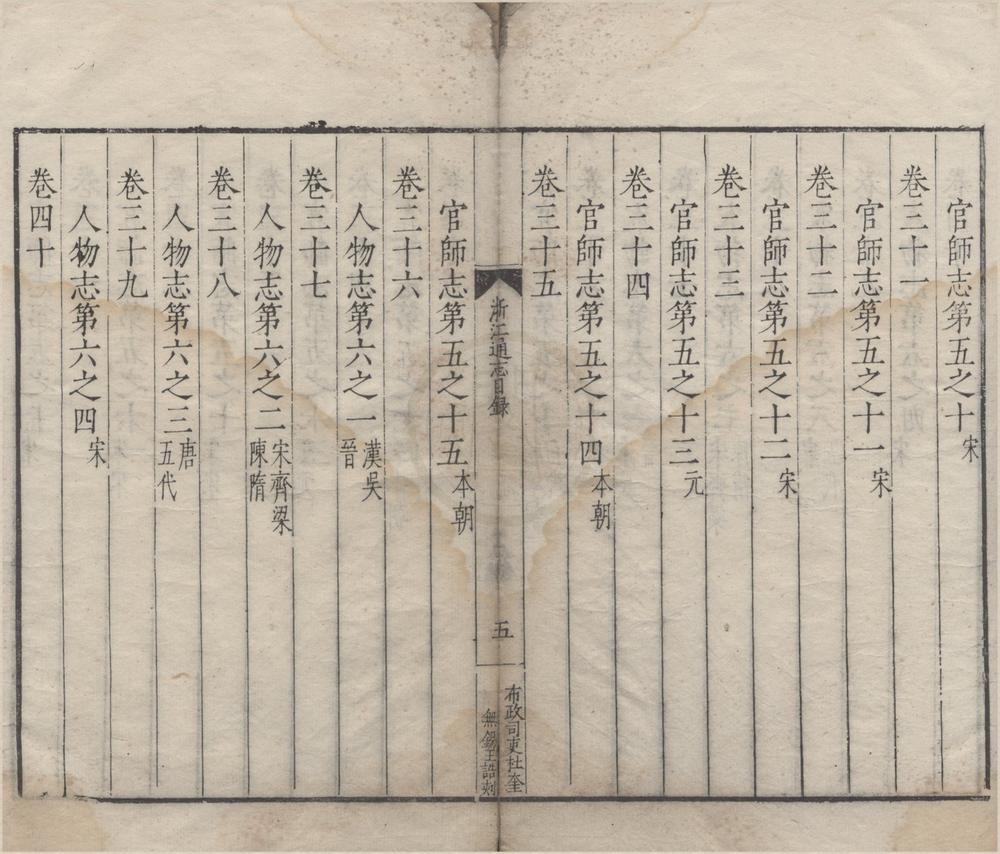 官師志第五之十宋
卷三十一
官師志第五之十一宋
卷三十二
官師志第五之十二宋
卷三十三
官師志第五之十三元
卷三十四
官師志第五之十四本朝
卷三十五
浙江通志目録
五
布政司吏杜奎
無錫王誥刻
官師志第五之十五本朝
卷三十六
人物志第六之一漢吳
晉
卷三十七
人物志第六之二宋齊梁
陳隋
卷三十八
人物志第六之三唐
五代
卷三十九
人物志第六之四宋
卷四十